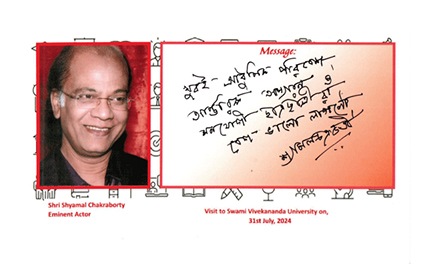 Message:
খুবই - আধুনিক পরিবেশ।
আন্তরিক অধ্যাপক ও
মনযোগী ছাত্রছাত্রীরা
বেশ - ভালো লাগলো
Shri Shyamal Chakraborty
Eminent Actor
Visit to Swami Vivekananda University on,
31st July, 2024